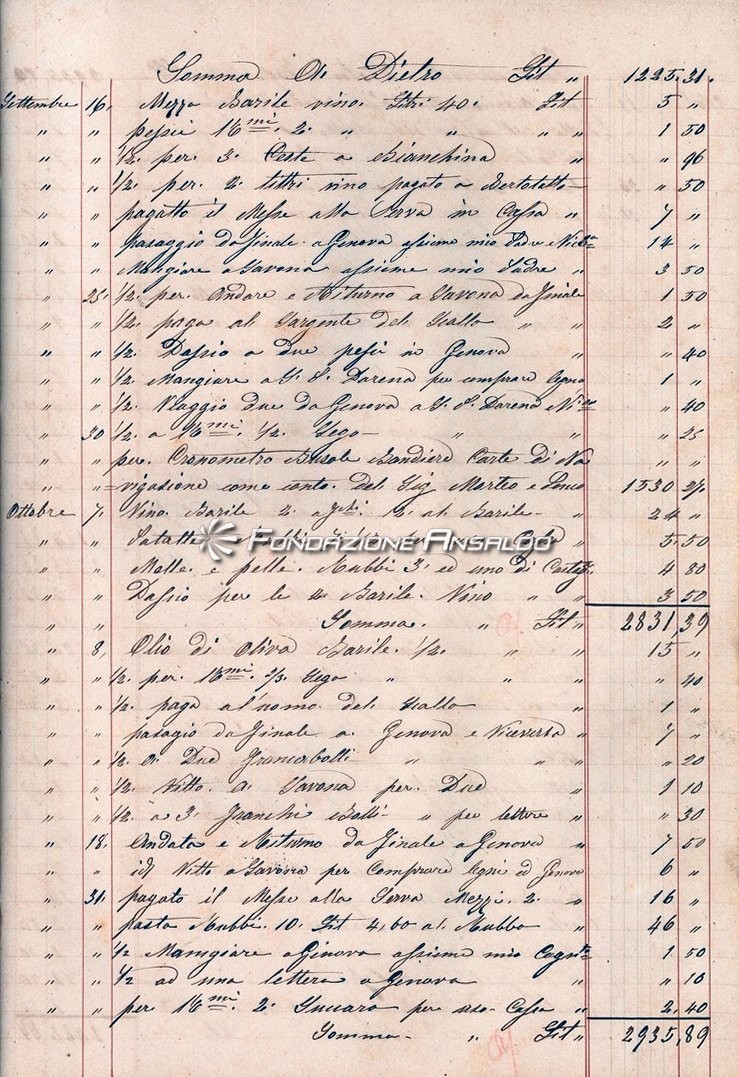 Somma Di Dietro Lit " 1225.31.
Settembre 16, Mezza Barile vino. Litri 40. Lit 5 "
" " pessii 16mi. 2. " " " 1 50
" " 1/2. per. 3. Ceste a Bianchina " " 96
" " 1/2. per. 2. littri vino pagato a Bertolotto " 50
" " pagatto il Messe alla in Cassa " 7 "
" " pasaggio da Finale a Genova assieme mio Padre e 14 "
" " Mangiare a Savona assieme mio Padre " 3 50
" 25. 1/2. per. Andare e Ritorno a Savona da Finale 1 50
" " 1/2. paga al Sargente del Scallo " " 2 "
" " 1/2. Dassio a due pessi in Genova " " 40
" " 1/2. Mangiare a S. P. Darena per comprare legna 1 "
" " 1/2. Viaggio due da Genova a S. P. Darena " 40
" 30 1/2. a 16mi. 1/2. Sego " " " 25
" " per. Cronometro Busole Bandiere Carte di Na " "
" " =vigasione come conto. del Sig Morteo e 1530 27.
Ottobre 7. Vino. Barile 2. a 12. al Barile 24 "
" " Patatte Rubbi 5.50
" " Melle. e pelle. Rubbi 3. ed uno di 4 80
" " Dassio per le 2 Barile. Vino " " 3 50
" " Somma. " Lit " 2831,39
" 8, Olio di Oliva Barile. 1/2. " " 15 "
" " 1/2. per. 16mi. 2/3. Sego " " " 40
" " 1/2. paga al'uomo del Scallo " 1 "
" " pasagio da Finale a. Genova e Viceversa " 7 "
" " 1/2. di Due Francorbolli " " " " 20
" " 1/2. Vitto. a. Savona per. Due " 1 10
" " 1/2. a 3. Franchi Bolli " per lettere " " 30
" 18. Andata e Ritorno da Finale a Genova " 7 50
" " id. Vitto a Savona per Comprare legni ed Genova 6 "
" 31. pagato il Messe alla Serva Mezzi. 2. " 16 "
" " pasta Rubbi. 10. Lit 4,60 al. Rubbo " 46 "
" " 1/2 Mangiare a Genova assieme mio 1 50
" " 1/2 ad una lettera a Genova " " 10
" " per 16mi. 2. Succaro per uso Cassa " 2,40
Somma " Lit " 2935,89
FONDAZIONE ANSALDO